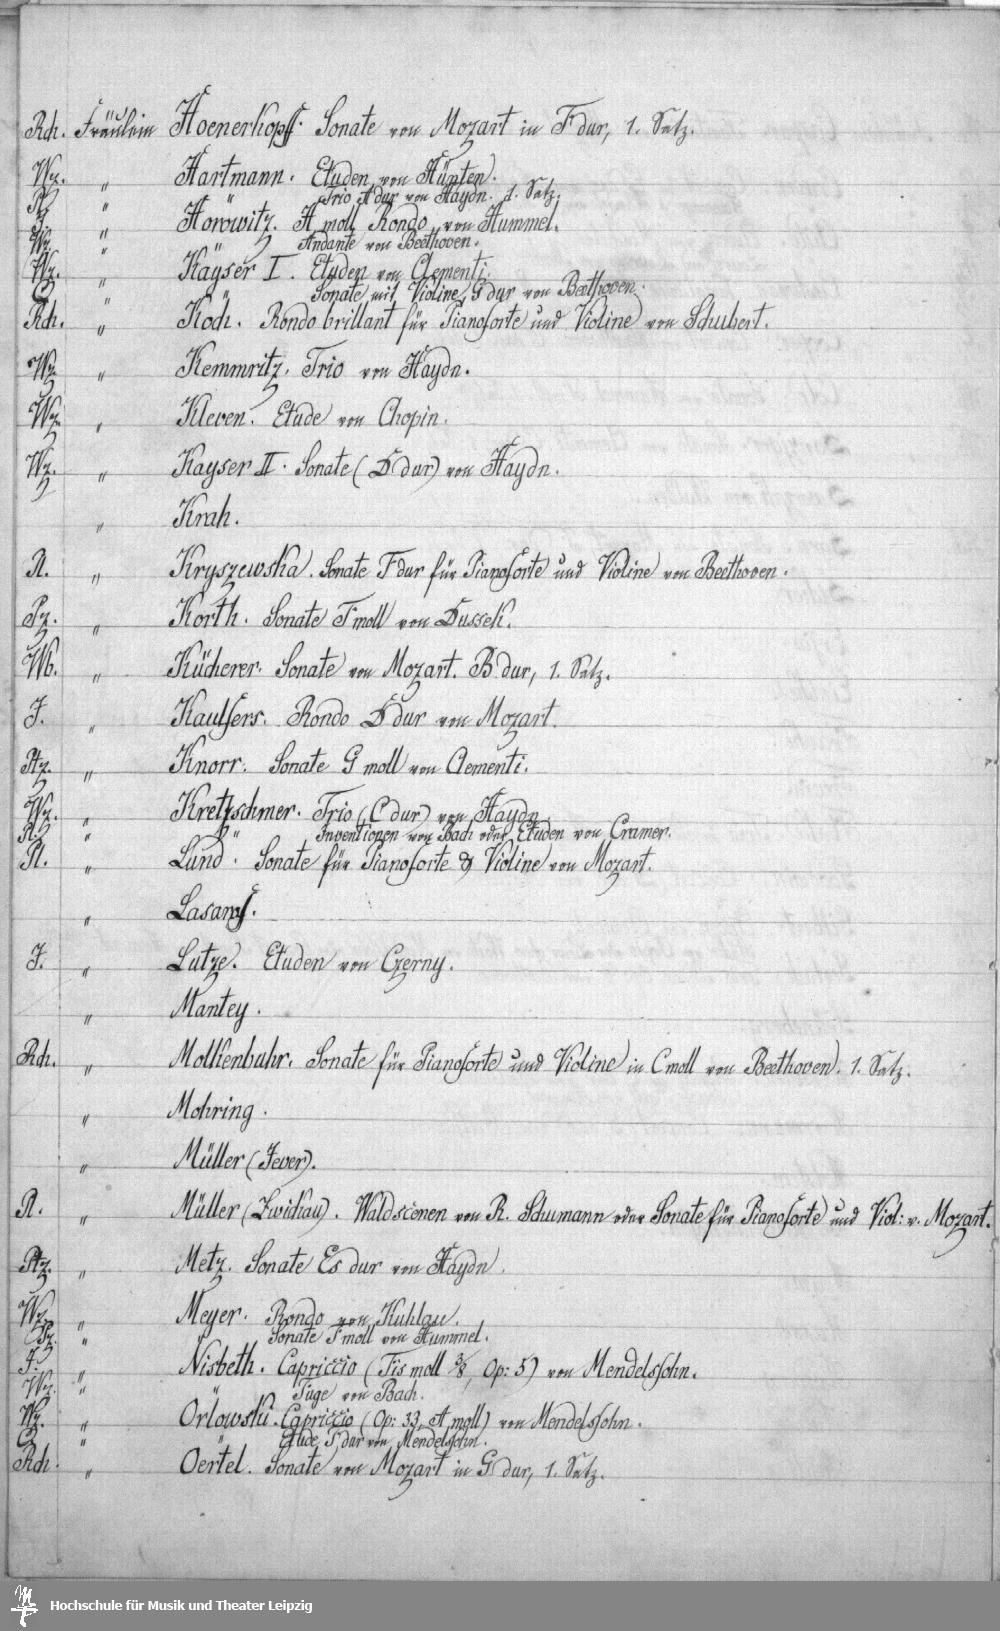 Rch. Fräulein Hoenerkopff. Sonate von Mozart in F dur, 1. Satz.
Wz. " Hartmann. Etuden von Hünten.
" " Trio A dur von Haydn. 1. Satz.
" Horowitz. A moll Rondo von Hummel.
Wz. " " Andante von Beethoven.
Wz. " Kayser I. Etuden von Clementi.
" " Sonate mit Violine G dur von Beethoven.
Rch. " Koch. Rondo brillant für Pianoforte und Violine von Schubert.
Wz. " Kemmritz. Trio von Haydn.
Wz. " Kleven. Etude von Chopin.
Wz. " Kayser II. Sonate (D dur) von Haydn.
" Krah.
R. " Kryszewska. Sonate F dur für Pianoforte und Violine von Beethoven.
Pz. " Korth. Sonate F moll von Dussek.
Wb. " Kücherer. Sonate von Mozart. B dur, 1. Satz.
J. " Kaulfers. Rondo D dur von Mozart.
Ptz. " Knorr. Sonate G moll von Clementi.
Wz. " Kretzschmer. Trio (C dur) von Haydn.
R. " " Inventionen von Bach oder Etuden von Cramer.
R. " Lund. Sonate für Pianoforte & Violine von Mozart.
"
J. " Lutze. Etuden von Czerny.
" Mantey.
Rch. " Molkenbuhr. Sonate für Pianoforte und Violine in C moll von Beethoven. 1. Satz.
" Mohring.
" Müller (Jever).
R. " Müller (Zwickau). Waldscenen von R. Schumann oder Sonate für Pianoforte und Viol: v. Mozart.
Ptz. " Metz. Sonate Es dur von Haydn.
Wz. " Meyer. Rondo von Kuhlau.
Pz. " Sonate F moll von Hummel.
J. " Nisbeth. Capriccio (Fis moll 3/8, Op: 5) von Mendelssohn.
Wz. " " Fuge von Bach.
Wz. " Orlowski. Capriccio (Op: 33, A moll) von Mendelssohn.
" " Etude F dur von Mendelssohn.
Rch. " Oertel. Sonate von Mozart in G dur, 1. Satz.
Hochschule für Musik und Theater Leipzig